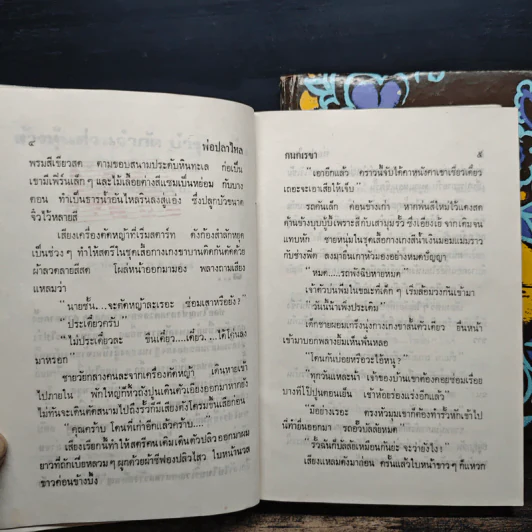 ๔
พ่อปลาไหล
พรมสีเขียวสด ตามขอบสนามประดับหินทะเล ก่อเป็น
เขามีเฟิร์นเล็กๆ และไม้เลื้อยต่างสีแซมเป็นหย่อม กับบาง
ตอน ทำเป็นธารน้ำอันไหลรินลงสู่แอ่ง ซึ่งปลูกบัวขนาด
จิ๋วไว้หลายสี
เสียงเครื่องตัดหญ้าที่เริ่มสตาร์ท ดังก้องสำลักหยุด
เป็นช่วงๆ ทำให้สตรีในชุดเสื้อกางเกงขาบานติดกันตัดด้วย
ผ้าลวดลายสีสด โผล่หน้าออกมามอง พลางถามเสียง
แหลมว่า
"นายชั้น...จะตัดหญ้าละเรอะ ซ่อมเสาหรือยัง?"
"ประเดี๋ยวครับ"
"ไม่ประเดี๋ยวละ ขืนเดี๋ยว....เดี๋ยว....ได้โค่นลง
มาหรอก"
ชายวัยกลางคนละจากเครื่องตัดหญ้า เดินหายเข้า
ไปภายใน พักใหญ่ก็หิ้วถังปูนเดินตัวเอียงออกมาหากอยู่
ไม่ทันจะเดินตัดสนามไปถึงรั้วก็มีเสียงดังโครมขึ้นเสียก่อน
"คุณครับ โค่นพี่เก๋าอีกแล้วครับ...."
เสียงเรียกนี้ทำให้สตรีคนเดิมเดินตัวปลิวออกมาผม
ยาวที่ถักเปียหลวมๆ ผูกด้วยผ้าชีฟองปลิวไสว ใบหน้านวล
ขาวค่อนข้างบึ้ง
กนกเรขา
๕
"เอาอีกแล้ว คราวนี้จับได้คาหนังคาเขาเชียวเดี๋ยว
เถอะจะเอาเสียให้เจ็บ"
รถคันเล็ก ค่อนข้างเก่า หากพ่นสีใหม่ไว้แดงสด
ด้านข้างบุบบู้บี้เพราะสีกับเสามุมรั้ว ซึ่งเอียงเอ้ จากเดิมจน
แทบหัก ชายหนุ่มในชุดเสื้อกางเกงสีน้ำเงินมอมแม่มราว
กับช่างฟิต ลงมายืนเกาหัวมองอย่างหมดปัญญา
"หมด.....รถพังฉิบหายหมด"
เจ้าตัวบ่นพึมในขณะที่เด็กๆ เริ่มล้อมวงกันเข้ามา
"วันนี้น้าเพิ่งประเดิม"
เด็กชายผอมเกร็งนุ่งกางเกงขาสั้นตัวเดียว ยื่นหน้า
เข้ามาบอกพลางยิ้มเห็นฟันหลอ
"โดนกันบ่อยหรือวะไอ้หนู?"
"ทุกวันแหละน้า เจ้าของบ้านเขาต้องคอยซ่อมเรื่อย
บางทีโบ้ปูนคอนเย็น เช้าห้อยร่องแร่งอีกแล้ว"
"มีอย่างเรอะ ตรงหัวมุมเขาก็ต้องทำรั้วหักเข้าไป
นี่ทำยื่นออกมา รถอั๊วบัลลัยหมด"
"รั้วฉันก็บัลลัยเหมือนกันย่ะ จะว่ายังไง?"
เสียงแหลมดังมาก่อน ครั้นแล้วใบหน้าขาวๆ ก็แหวก